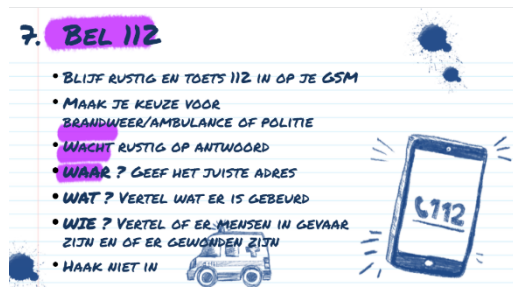 7. BEL 112
• BLIJF RUSTIG EN TOETS 112 IN OP JE GSM
• MAAK JE KEUZE VOOR
BRANDWEER/AMBULANCE OF POLITIE
• WACHT RUSTIG OP ANTWOORD
• WAAR ? GEEF HET JUISTE ADRES
• WAT ? VERTEL WAT ER IS GEBEURD
• WIE ? VERTEL OF ER MENSEN IN GEVAAR
ZIJN EN OF ER GEWONDEN ZIJN
• HAAK NIET IN
112